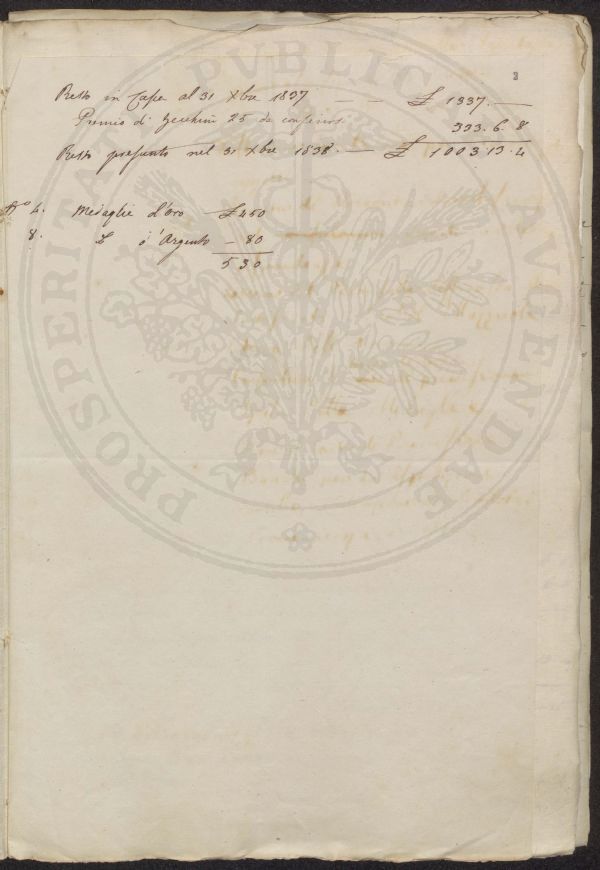 3
Resto in Cassa al 31 Xbre 1837 — — £ 1337. —
Premio di Zecchini 25 da conferirsi 333. 6. 8
Resto presunto nel 31 Xbre 1838. — £ 1003. 13. 4
No 4. Medaglie d'oro £ 450
8. d'Argento — 80
530
PROSPERITATI PVBLICAE AVGENDAE